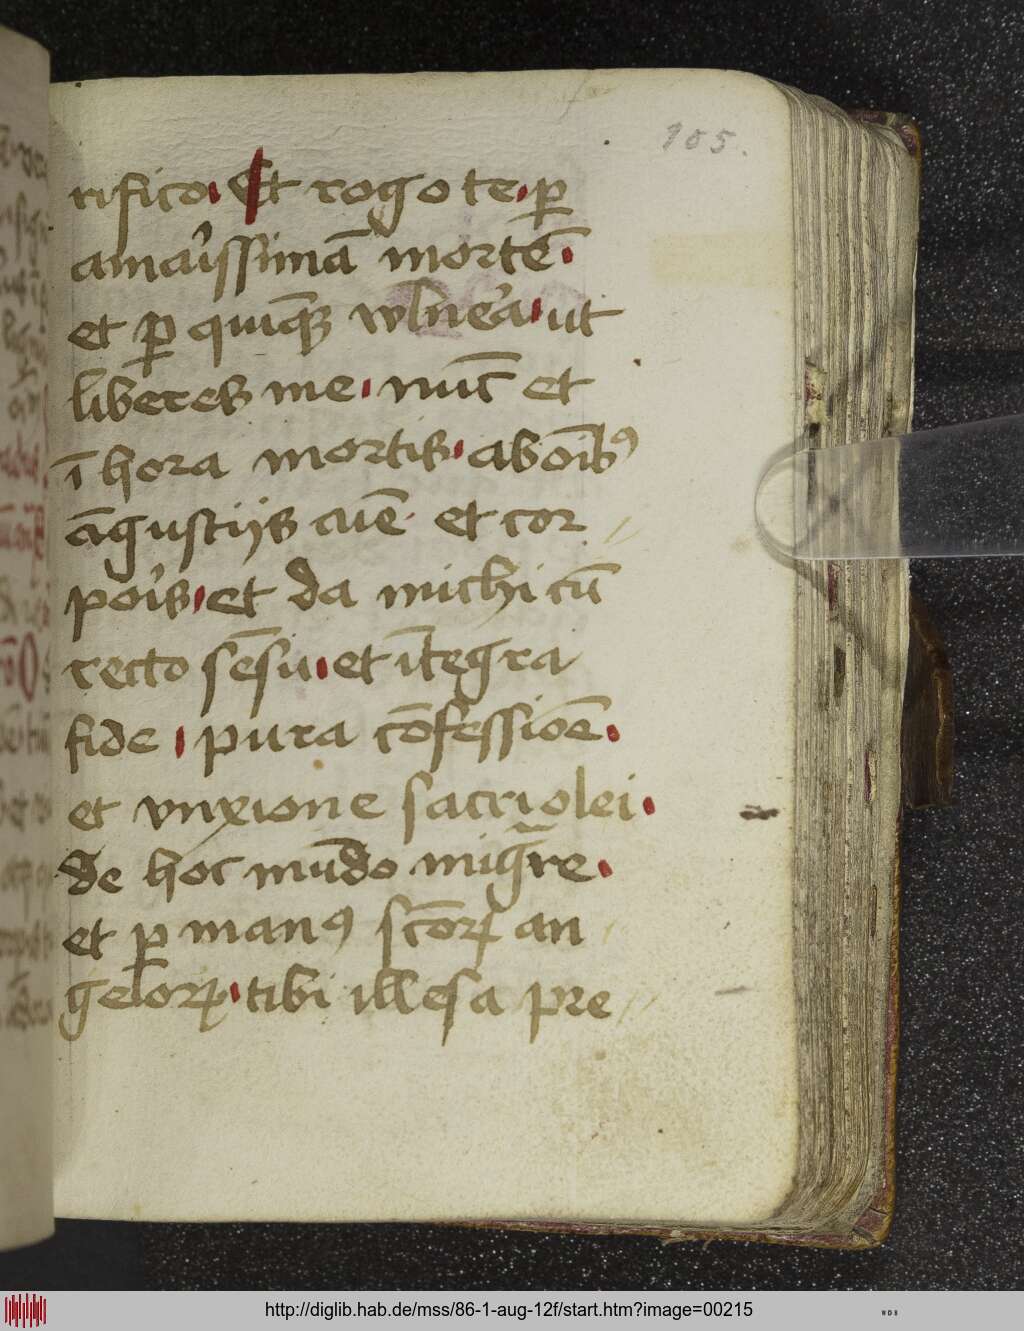 105.
rifico. Et rogo te. ꝑ
amaʳissimā mortē.
et ꝑ quinqꝫ wlneʳa. ut
liberes me. nūc et
ī hora mortis. ab oīb⁹
āgustijs aīe et cor
poʳis. et da michi cū
recto sēsu. et ītegra
fide. pura cōfessiōe.
et vnxione sacri olei.
de hoc mūdo migᵃre.
et ꝑ man⁹ sc̄oꝝ an
geloꝝ. tibi illesa pre
http://diglib.hab.de/mss/86-1-aug-12f/start.htm?image=00215